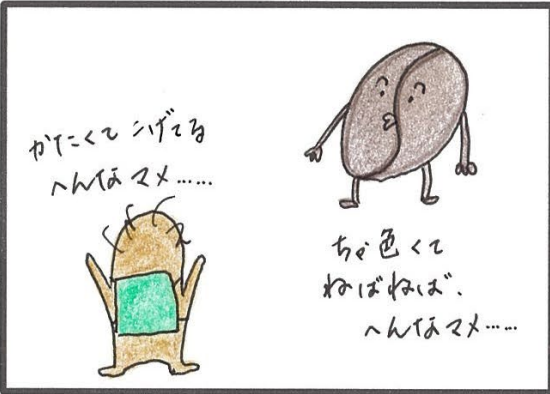 かたくて こげてる
へんなマメ……
ちゃ色くて
ねばねば、
へんなマメ……